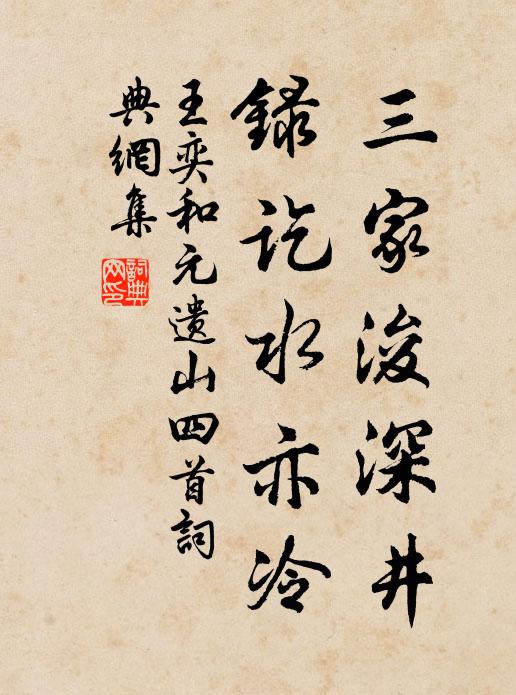 三家浚深井
録訖水亦冷
王奕和元遺山四首詞
典網集
詞典
网印